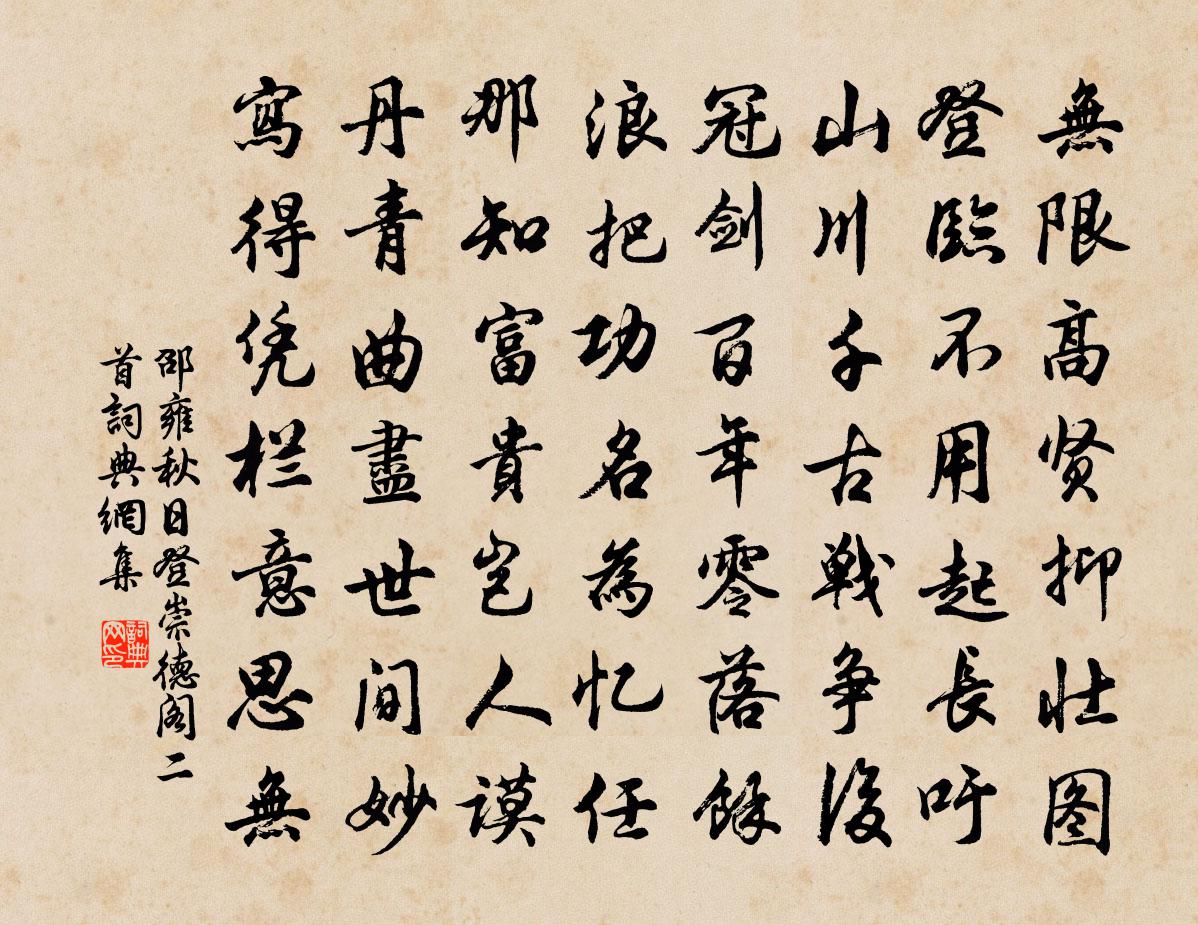 無限高贤抑壮图
登臨不用起長吁
山川千古戦争後
冠剑百年零落餘
浪把功名為忆任
那知富貴岂人谟
丹青曲盡世间妙
寫得凭栏意思無
邵雍秋日登崇德阁二
首詞典網集
詞典网印